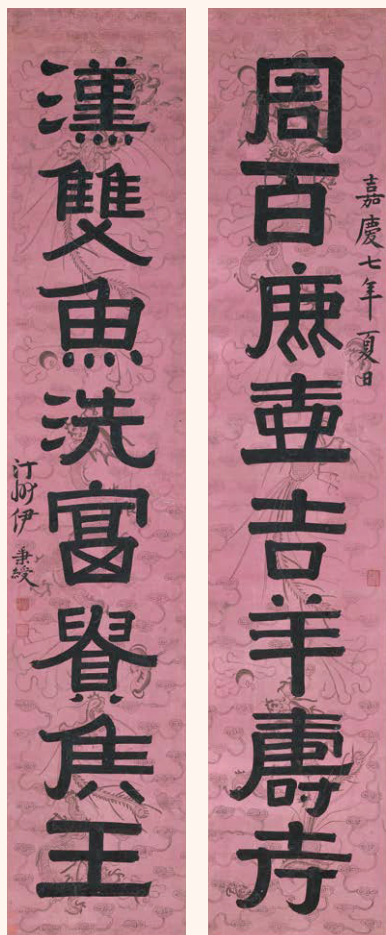 周百鹿壺吉羊壽考
嘉慶七年夏日
漢雙魚洗富貴矦王
汀州伊秉綬